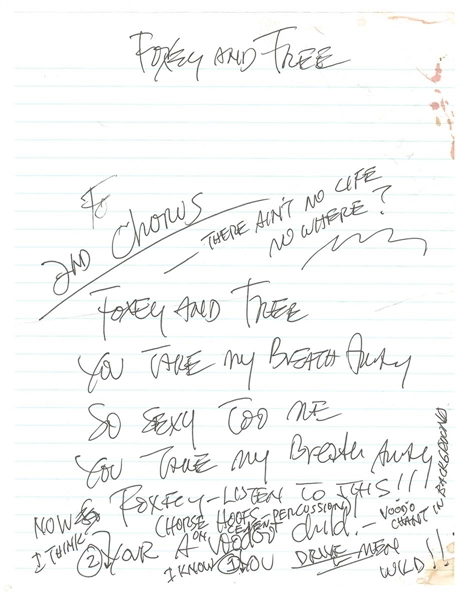 FOXEY AND FREE
To
2ND Chorus
— THERE AIN'T NO LIFE
NO WHERE?
FOXEY AND FREE
YOU TAKE MY BREATH AWAY
SO SEXY TOO ME
YOU TAKE MY BREATH AWAY
NOW FOXEY-LISTEN TO THIS!!!
(HORSE HOOFS-PERCUSSION)
VOODO
CHANT IN BACKGROUND
I THINK
② YOUR A VOODOO Child.-
I KNOW ① YOU DRIVE MEN WILD!!